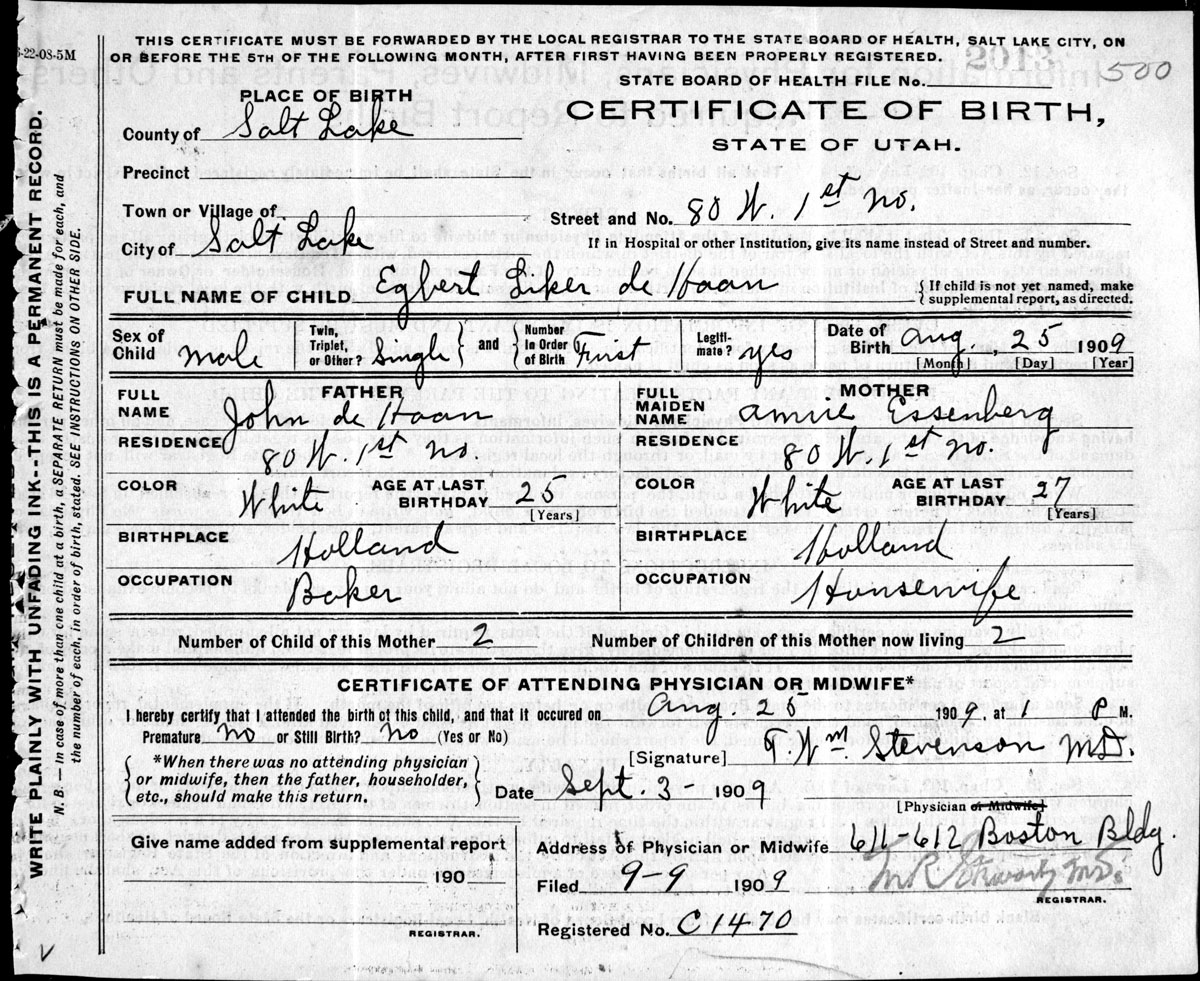 5-22-08-5M
THIS CERTIFICATE MUST BE FORWARDED BY THE LOCAL REGISTRAR TO THE STATE BOARD OF HEALTH, SALT LAKE CITY, ON
OR BEFORE THE 5TH OF THE FOLLOWING MONTH, AFTER FIRST HAVING BEEN PROPERLY REGISTERED.
500
STATE BOARD OF HEALTH FILE No.
PLACE OF BIRTH
CERTIFICATE OF BIRTH,
STATE OF UTAH.
County of Salt Lake
Precinct
Town or Village of
Street and No. 80 W. 1st No.
City of Salt Lake
If in Hospital or other Institution, give its name instead of Street and number.
FULL NAME OF CHILD Egbert Liker de Haan
{ If child is not yet named, make supplemental report, as directed.
Sex of Child Male
Twin, Triplet, or Other? Single } and { Number in Order of Birth First
Legitimate? yes
Date of Birth Aug. 25 1909
[Month] [Day] [Year]
FATHER
FULL NAME John de Haan
RESIDENCE 80 W. 1st No.
COLOR White AGE AT LAST BIRTHDAY 25 [Years]
BIRTHPLACE Holland
OCCUPATION Baker
MOTHER
FULL MAIDEN NAME Annie Essenberg
RESIDENCE 80 W. 1st No.
COLOR White AGE AT LAST BIRTHDAY 27 [Years]
BIRTHPLACE Holland
OCCUPATION Housewife
Number of Child of this Mother 2 Number of Children of this Mother now living 2
CERTIFICATE OF ATTENDING PHYSICIAN OR MIDWIFE*
I hereby certify that I attended the birth of this child, and that it occured on Aug. 25 1909, at 1 P M.
Premature No or Still Birth? No (Yes or No)
[Signature] T. Wm Stevenson M.D.
{ *When there was no attending physician
or midwife, then the father, householder,
etc., should make this return. }
Date Sept. 3 - 1909
[Physician or Midwife]
Give name added from supplemental report
190
REGISTRAR.
Address of Physician or Midwife 611-612 Boston Bldg.
Filed 9-9 1909
M.D.
REGISTRAR.
Registered No. C1470
WRITE PLAINLY WITH UNFADING INK--THIS IS A PERMANENT RECORD.
N. B. — In case of more than one child at a birth, a SEPARATE RETURN must be made for each, and
the number of each, in order of birth, stated. SEE INSTRUCTIONS ON OTHER SIDE.